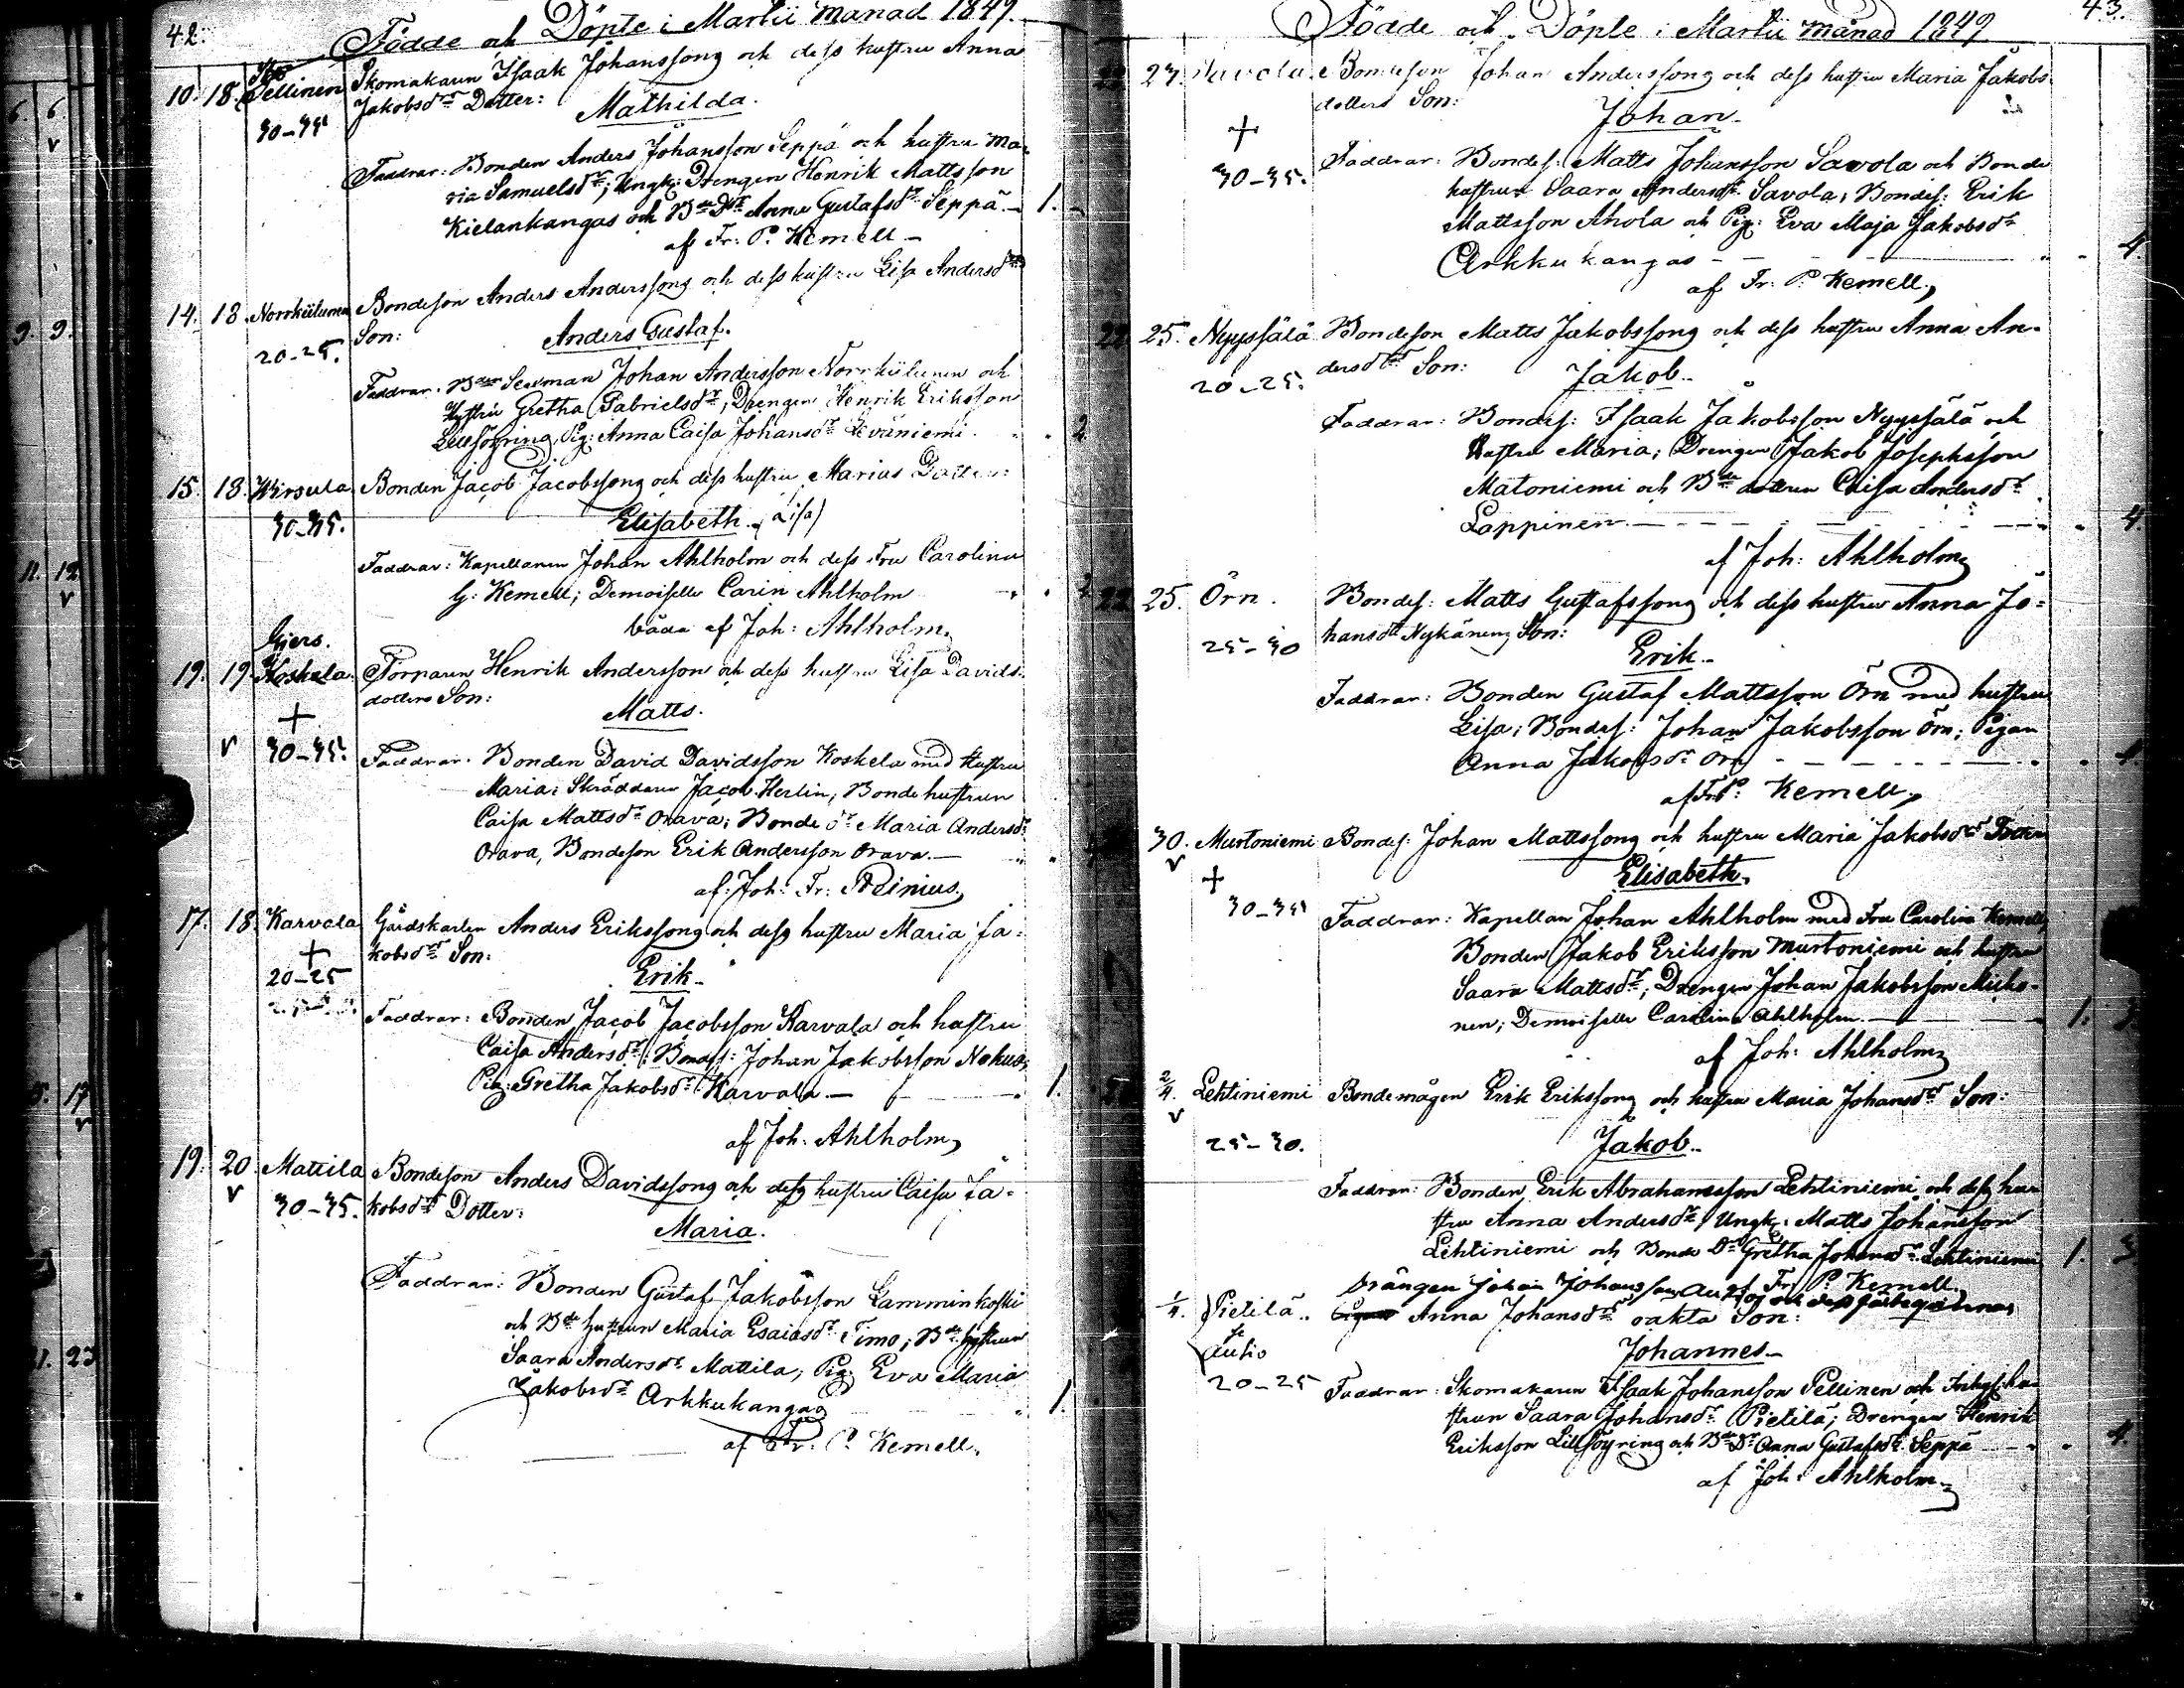 42.
Födde och Döpte i Martii månad 1849.
10. 18. Pellinen Skomakaren Isaak Johanssons och dess hustru Anna
Jakobsdrs Dotter:
Mathilda.
30-35
Faddrar: Bonden Anders Johansson Seppä och hustru Ma-
ria Samuelsdr; Ungk: Drengen Henrik Mattsson
Kielankangas och Bde Dr Anna Gustafsdr Seppä. 1.
af Fr: P. Kemell
14. 18. Norrkiilunen Bondeson Anders Anderssons och dess hustru Lisa Andersdrs
Son: Anders Gustaf.
20-25.
Faddrar: Johan Andersson Norrkiilunen och
Hustru Gretha Gabrielsdr; Drengen Henrik Eriksson
Lillsöyring, Pig: Anna Caisa Johansdr Leväniemi. 2
15. 18. Wirsula Bonden Jacob Jacobssons och dess hustru Marias Dotter:
30-35. Elisabeth (Lisa)
Faddrar: Kapellanen Johan Ahlholm och dess Fru Carolina
G. Kemell; Demoiselle Carin Ahlholm 2
båda af Joh: Ahlholm
Gjers.
19. 19. Koskela Torparen Henrik Andersson och dess hustru Lisa Davids-
dotters Son:
Matts.
+
v 30-35. Faddrar: Bonden David Davidsson Koskela med Hustru
Maria; Skräddaren Jacob Herlin; Bonde hustrun
Caisa Mattsdr Orava; Bonde dr Maria Andersdr
Orava, Bondeson Erik Andersson Orava.
af: Joh: Fr:
17. 18. Karvala Gårdskarlen Anders Erikssons och dess hustru Maria Ja-
kobsdrs Son:
+
20-25 Erik
Faddrar: Bonden Jacob Jacobsson Karvala och hustru
Caisa Andersdr; Bondes: Johan Jakobsson Nokua;
Pig: Gretha Jakobsdr Karvala 1.
af Joh. Ahlholm
19. 20. Mattila Bondeson Anders Davidssons och dess hustru Caisa Ja-
v 30-35. kobsdrs Dotter:
Maria.
Faddrar: Bonden Gustaf Jakobsson Lamminkoski
och Bde hustrun Maria Esaiasdr Timo; Bde hustrun
Saara Andersdr Mattila; Pig: Eva Maria
Jakobsdr Arkkukangas 1.
af Fr: P. Kemell.
43.
Födde och Döpte i Martii månad 1849
23. Savola Bondeson Johan Anderssons och dess hustru Maria Jakobs-
dotters Son:
Johan
+
30-35. Faddrar: Bondes: Matts Johansson Savola och Bonde
hustrun Saara Andersdr Savola; Bondes: Erik
Mattsson Ahola och Pig: Eva Maja Jakobsdr
Arkkukangas 4.
af Fr: P. Kemell
22. 25. Nyyssälä Bondeson Matts Jakobssons och dess hustru Anna An-
dersdrs Son:
20-25. Jakob
Faddrar: Bondes: Isaak Jakobsson Nyyssälä och
Hustru Maria; Drengen Jakob Josephsson
Matoniemi och Bde dottren Caisa Andersdr
Lappinen 4.
af Joh: Ahlholm
22. 25. Örn. Bondes: Matts Gustafssons och dess hustru Anna Jo-
hansdr Nykänens Son:
25-30 Erik
Faddrar: Bonden Gustaf Mattsson Örn med hustru
Lisa; Bondes: Johan Jakobsson Örn; Pigan
Anna Jakobsdr Örn 4.
af Fr P: Kemell
30. Murtoniemi Bondes: Johan Mattssons och hustru Maria Jakobsdrs Dotter
v Elisabeth.
+
30-35 Faddrar: Kapellan Johan Ahlholm med Fru Carolina Kemell;
Bonden Jakob Eriksson Murtoniemi och hustru
Saara Mattsdr; Drengen Johan Jakobsson
nen; Demoiselle Carolina Ahlholm 1. 3.
af Joh: Ahlholm
2/4 Lehtiniemi Bondemågen Erik Erikssons och hustru Maria Johansdrs Son:
v
25-30. Jakob
Faddrar: Bonden Erik Abrahamsson Lehtiniemi och dess hu-
stru Anna Andersdr; Ungk: Matts Johansson
Lehtiniemi och Bonde Dr Gretha Johansdr Lehtiniemi 1. 3
af Fr: P. Kemell
Drängen Johan Johanssons och dess
1/4 Pietilä Anna Johansdrs oäkta Son:
Autio Johannes
20-25 Faddrar: Skomakaren Isaak Johansson Pellinen och Inhyses hu-
strun Saara Johansdr Pietilä; Drengen Henrik
Eriksson Lillsöyring och Bde Dr Anna Gustafsdr Seppä 4.
af Joh: Ahlholm